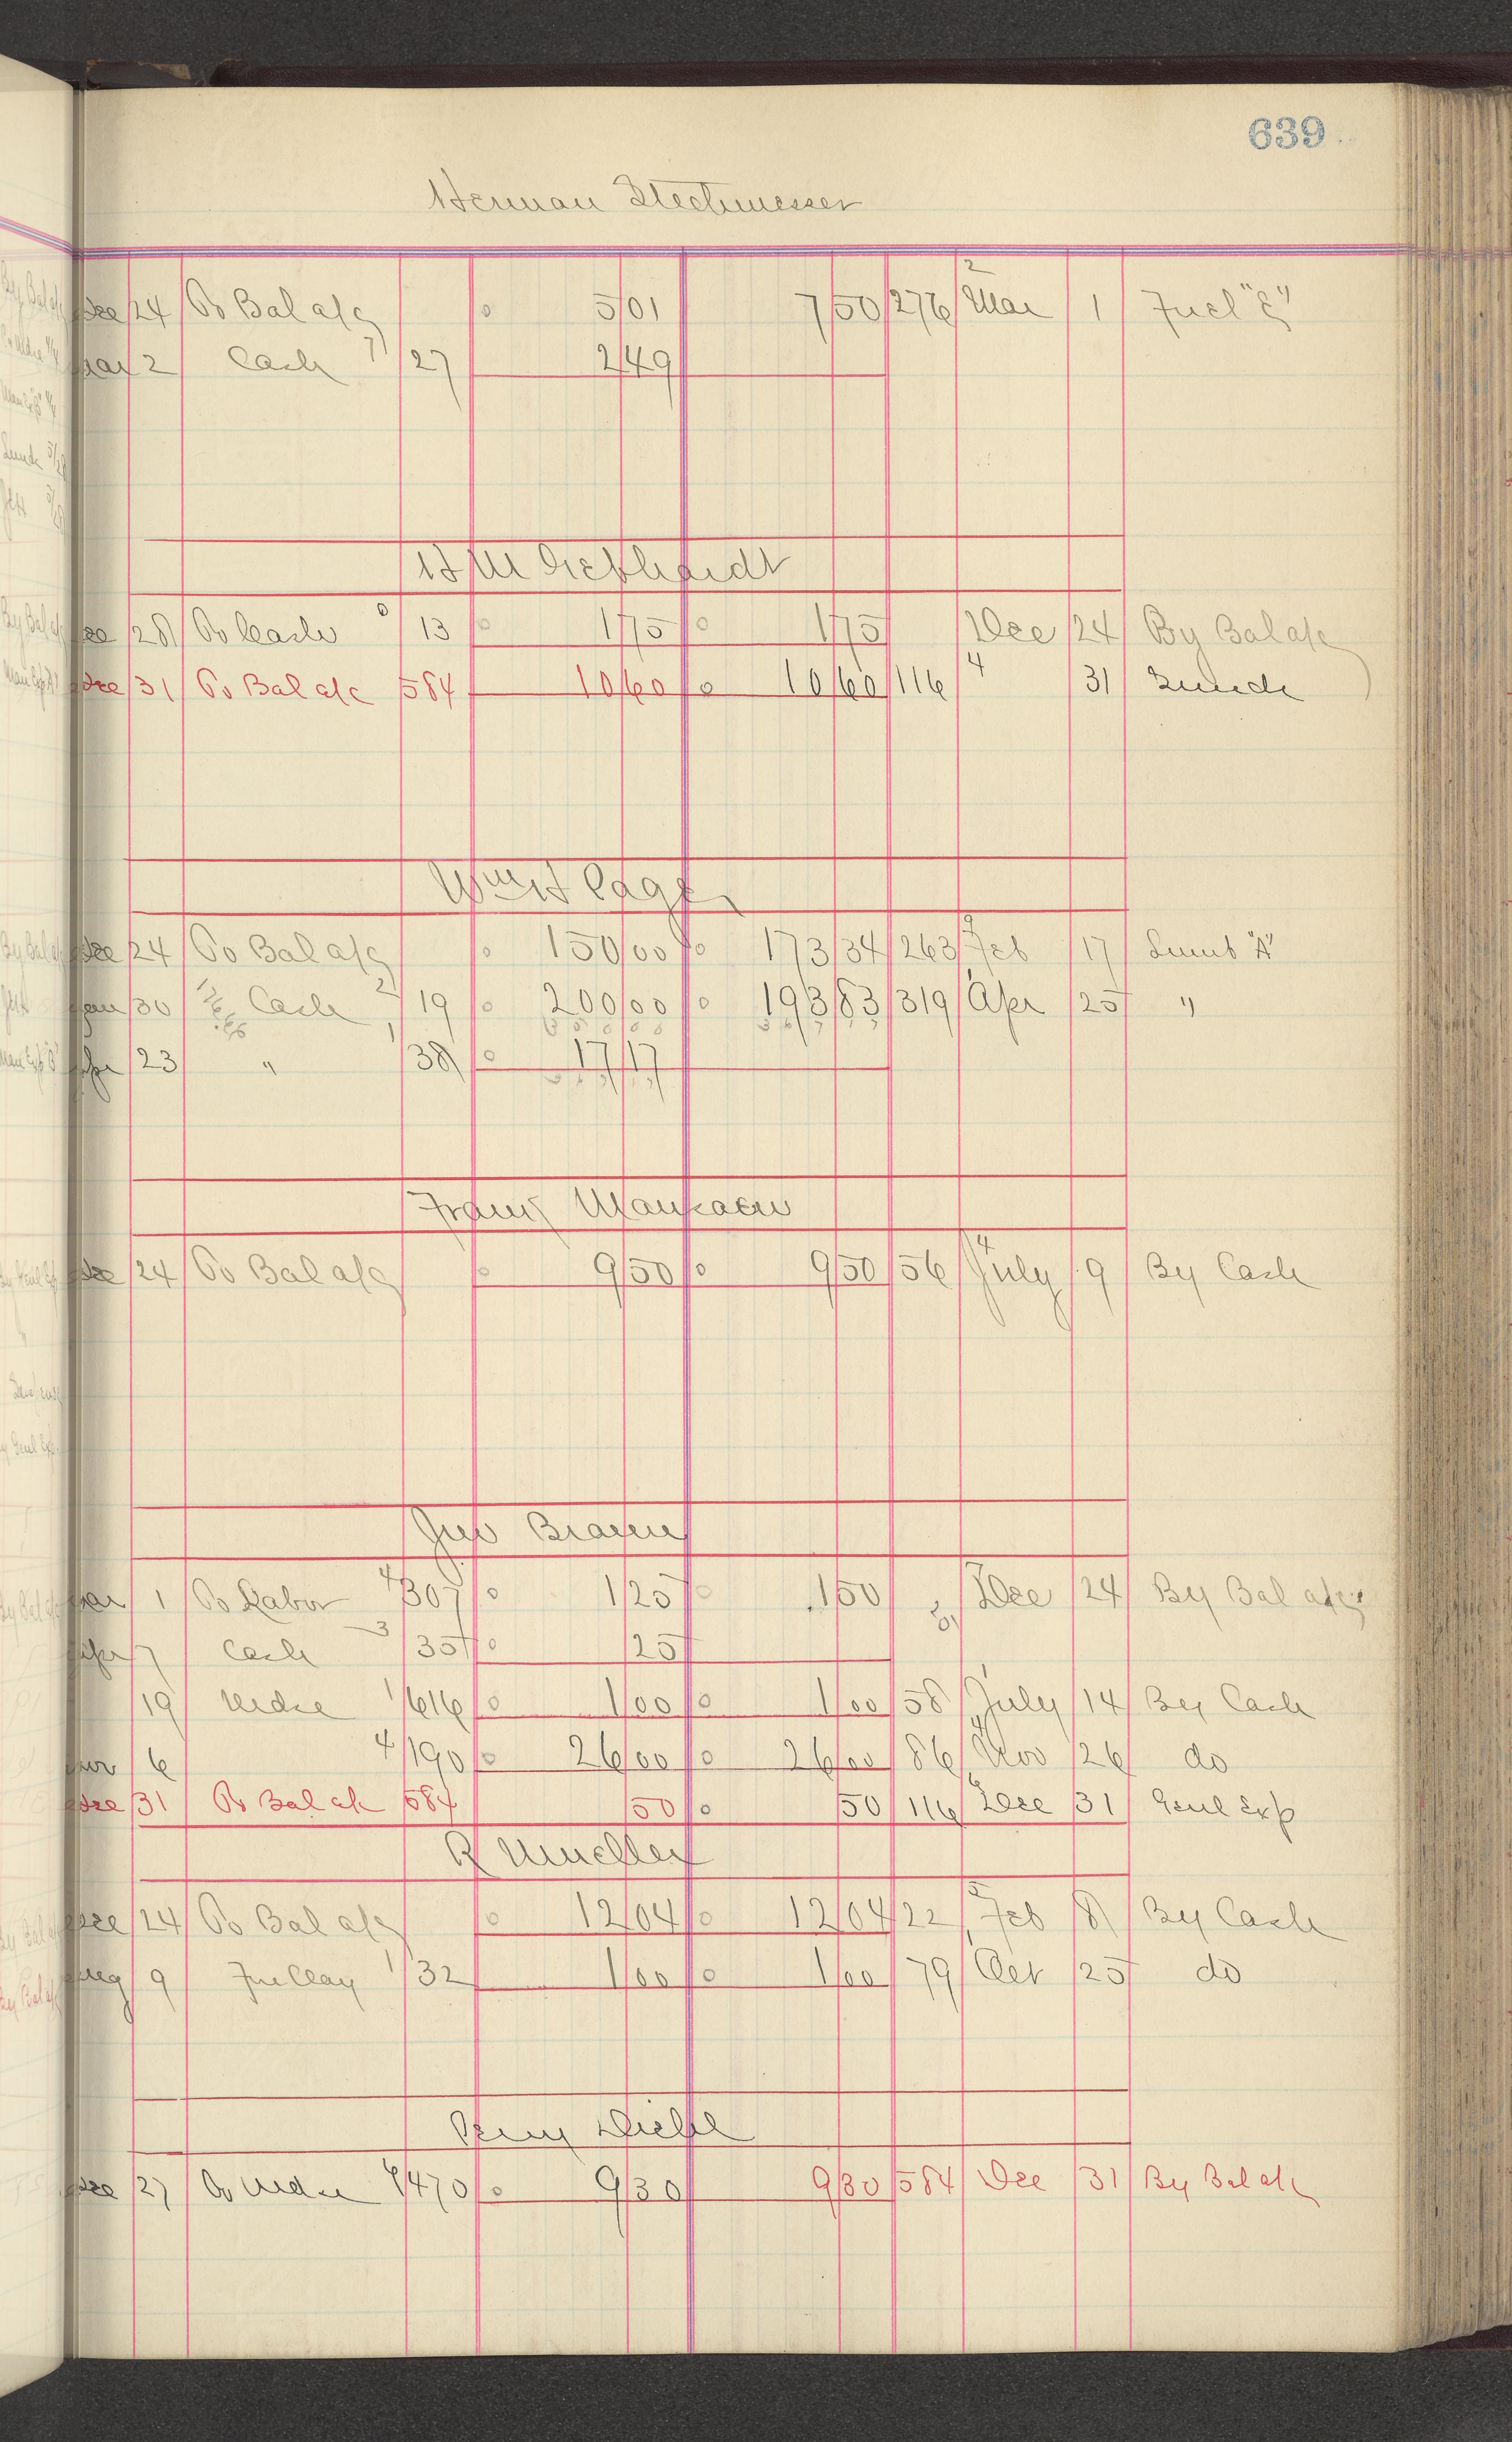 639
Herman Stechmesser
Dec 24 To Bal a/c 0 5 01 7 50 276 2 Mar 1 Fuel "E"
Mar 2 Cash 7 27 2 49
H M Gebhardt
Dec 28 To Cash 6 13 0 1 75 0 1 75 Dec 24 By Bal a/c
Dec 31 To Bal a/c 584 10 60 0 10 60 116 4 31 Sunds
Wm H Page
Dec 24 To Bal a/c 0 150 00 0 173 34 263 9 Feb 17 Lumb "A"
Jan 30 Cash 2 19 0 200 00 0 193 83 319 Apr 25 "
Apr 23 " 1 38 0 17 17
Franz
Dec 24 To Bal a/c 0 9 50 0 9 50 56 4 July 9 By Cash
Jno Braun
Mar 1 To Labor 4 307 0 1 25 0 1 50 Dec 24 By Bal a/c
Apr 7 Cash 3 35 0 25
19 Mdse 1 616 0 1 00 0 1 00 58 1 July 14 By Cash
Nov 6 4 190 0 26 00 0 26 00 86 4 Nov 26 do
Dec 31 To Bal a/c 584 50 0 50 116 Dec 31 Genl Exp
R Mueller
Dec 24 To Bal a/c 0 12 04 0 12 04 22 5 Feb 8 By Cash
Aug 9 Fire Clay 1 32 1 00 0 1 00 79 Oct 25 do
Diehl
Dec 27 To Mdse 470 0 9 30 9 30 584 Dec 31 By Bal a/c